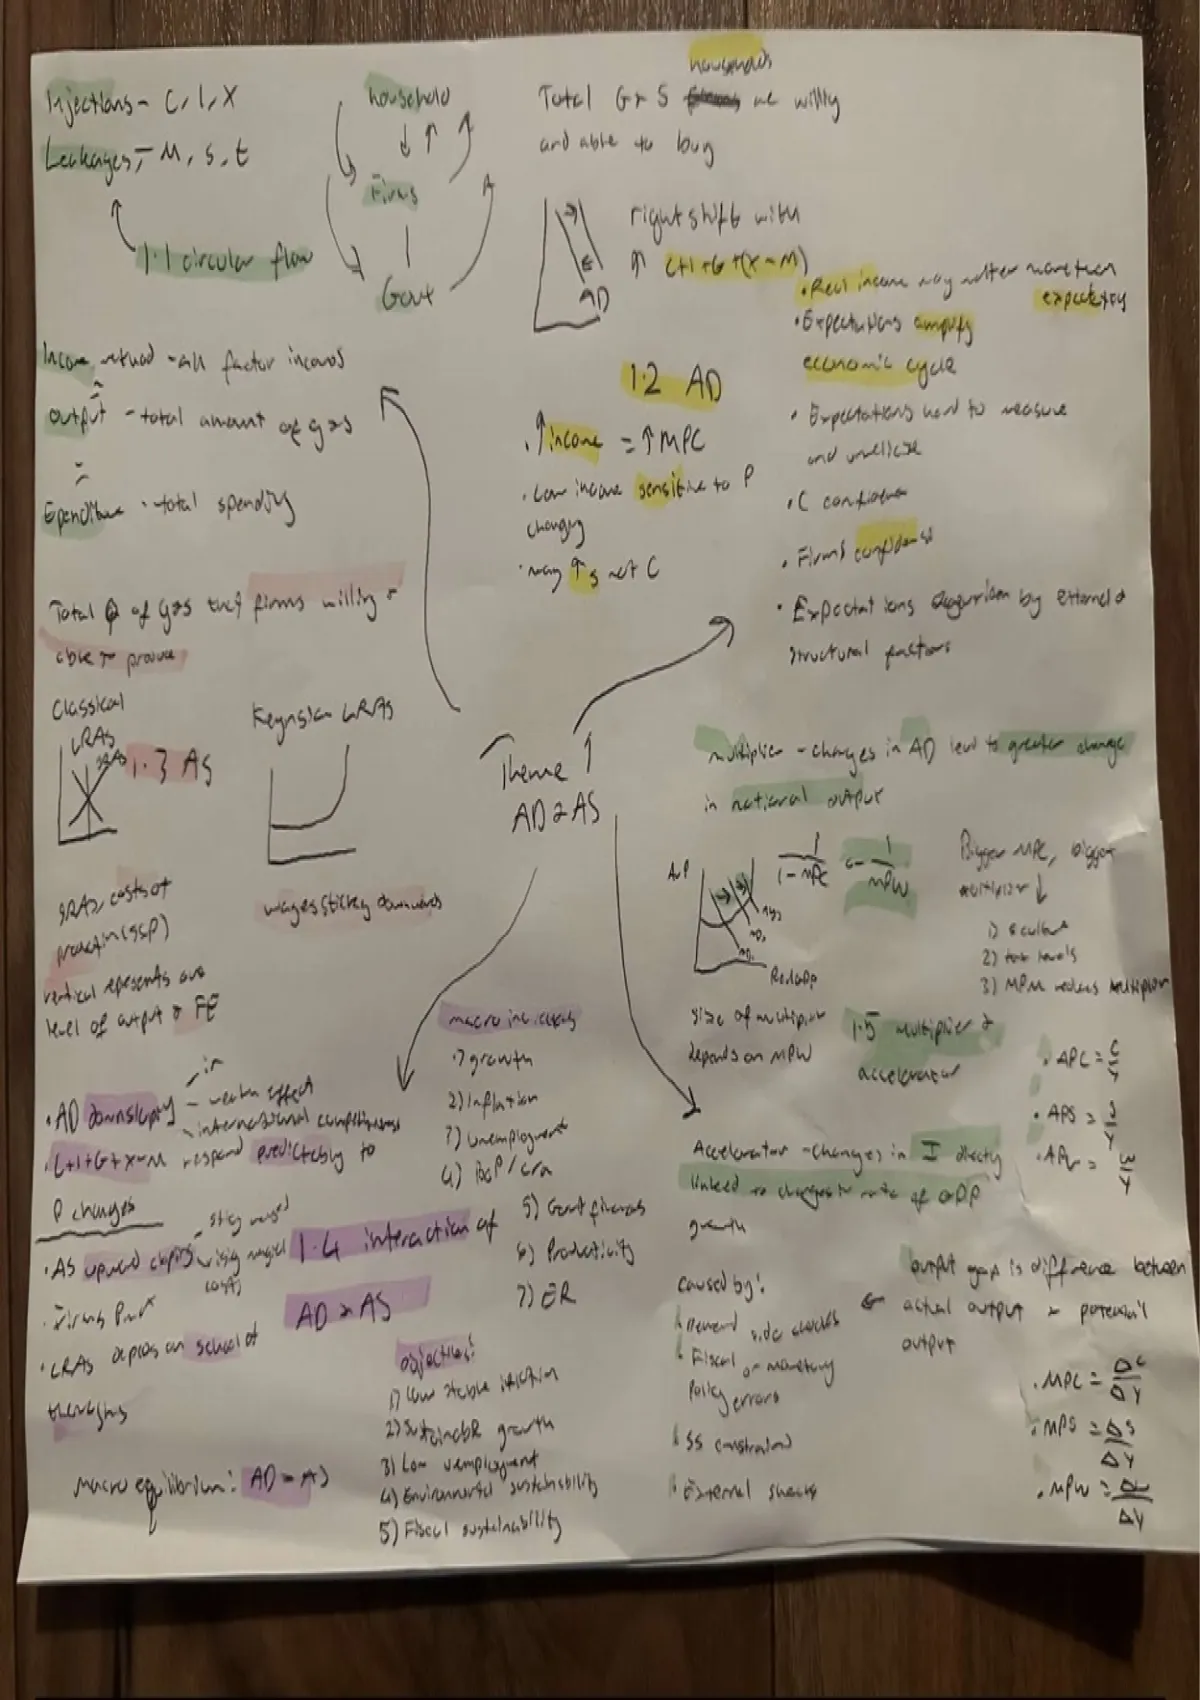 Injections - C, I, X
Leakages - M, S, t
1.1 circular flow
household
Firms
Govt
Income method - all factor incomes
=
output - total amount of g+s
=
Ependiture - total spending
households
Total G+S we willing
and able to buy
AD
right shift with
↑ C+I+G+(X-M)
1.2 AD
. ↑ income = ↑ MPC
. Low income sensitive to P
changing
. may ↑ s not C
• Real income may matter more than
expectations
• Expectations amplify
economic cycle
• Expectations hard to measure
and
• C confidence
• Firms confidence
• Expectations by external &
structural factors
Total Q of g+s that firms willing +
able to produce
Classical
LRAS
SRAS
1.3 AS
Keynsian LRAS
wages sticky downwards
SRAS, costs of
production (SSP)
vertical represents ave
level of output & FE
Theme 1
AD & AS
multiplier - changes in AD lead to greater change
in national output
AvP
AD3
AD2
AD1
Real GDP
1/(1-MPC) or 1/MPW
Bigger MPC, bigger
multiplier ↓
1)
2) tax levels
3) MPM reduces multiplier
size of multiplier
depends on MPW
1.5 multiplier &
accelerator
. APC = C/Y
. APS = S/Y
. APW = W/Y
Accelerator - changes in I directly
linked to changes in rate of GDP
growth
caused by:
Demand side shocks
Fiscal or monetary
Policy errors
SS constraint
External shocks
output gap is difference between
actual output & potential
output
. MPC = ΔC/ΔY
. MPS = ΔS/ΔY
. MPW = ΔW/ΔY
• AD downsloping
- wealth effect
international competitiveness
• C+I+G+X-M respond predictably to
P changes
• AS upward sloping
sticky wages
rising marginal
costs
• Firms
• LRAS depends on school of
thoughts
1.4 interaction of
AD & AS
Macro equilibrium: AD = AS
macro indicators
1) growth
2) Inflation
3) unemployment
4) BoP/
5) Govt finances
6) Productivity
7) ER
objectives:
1) low stable inflation
2) Sustainable growth
3) Low unemployment
4) Environmental sustainability
5) Fiscal sustainability